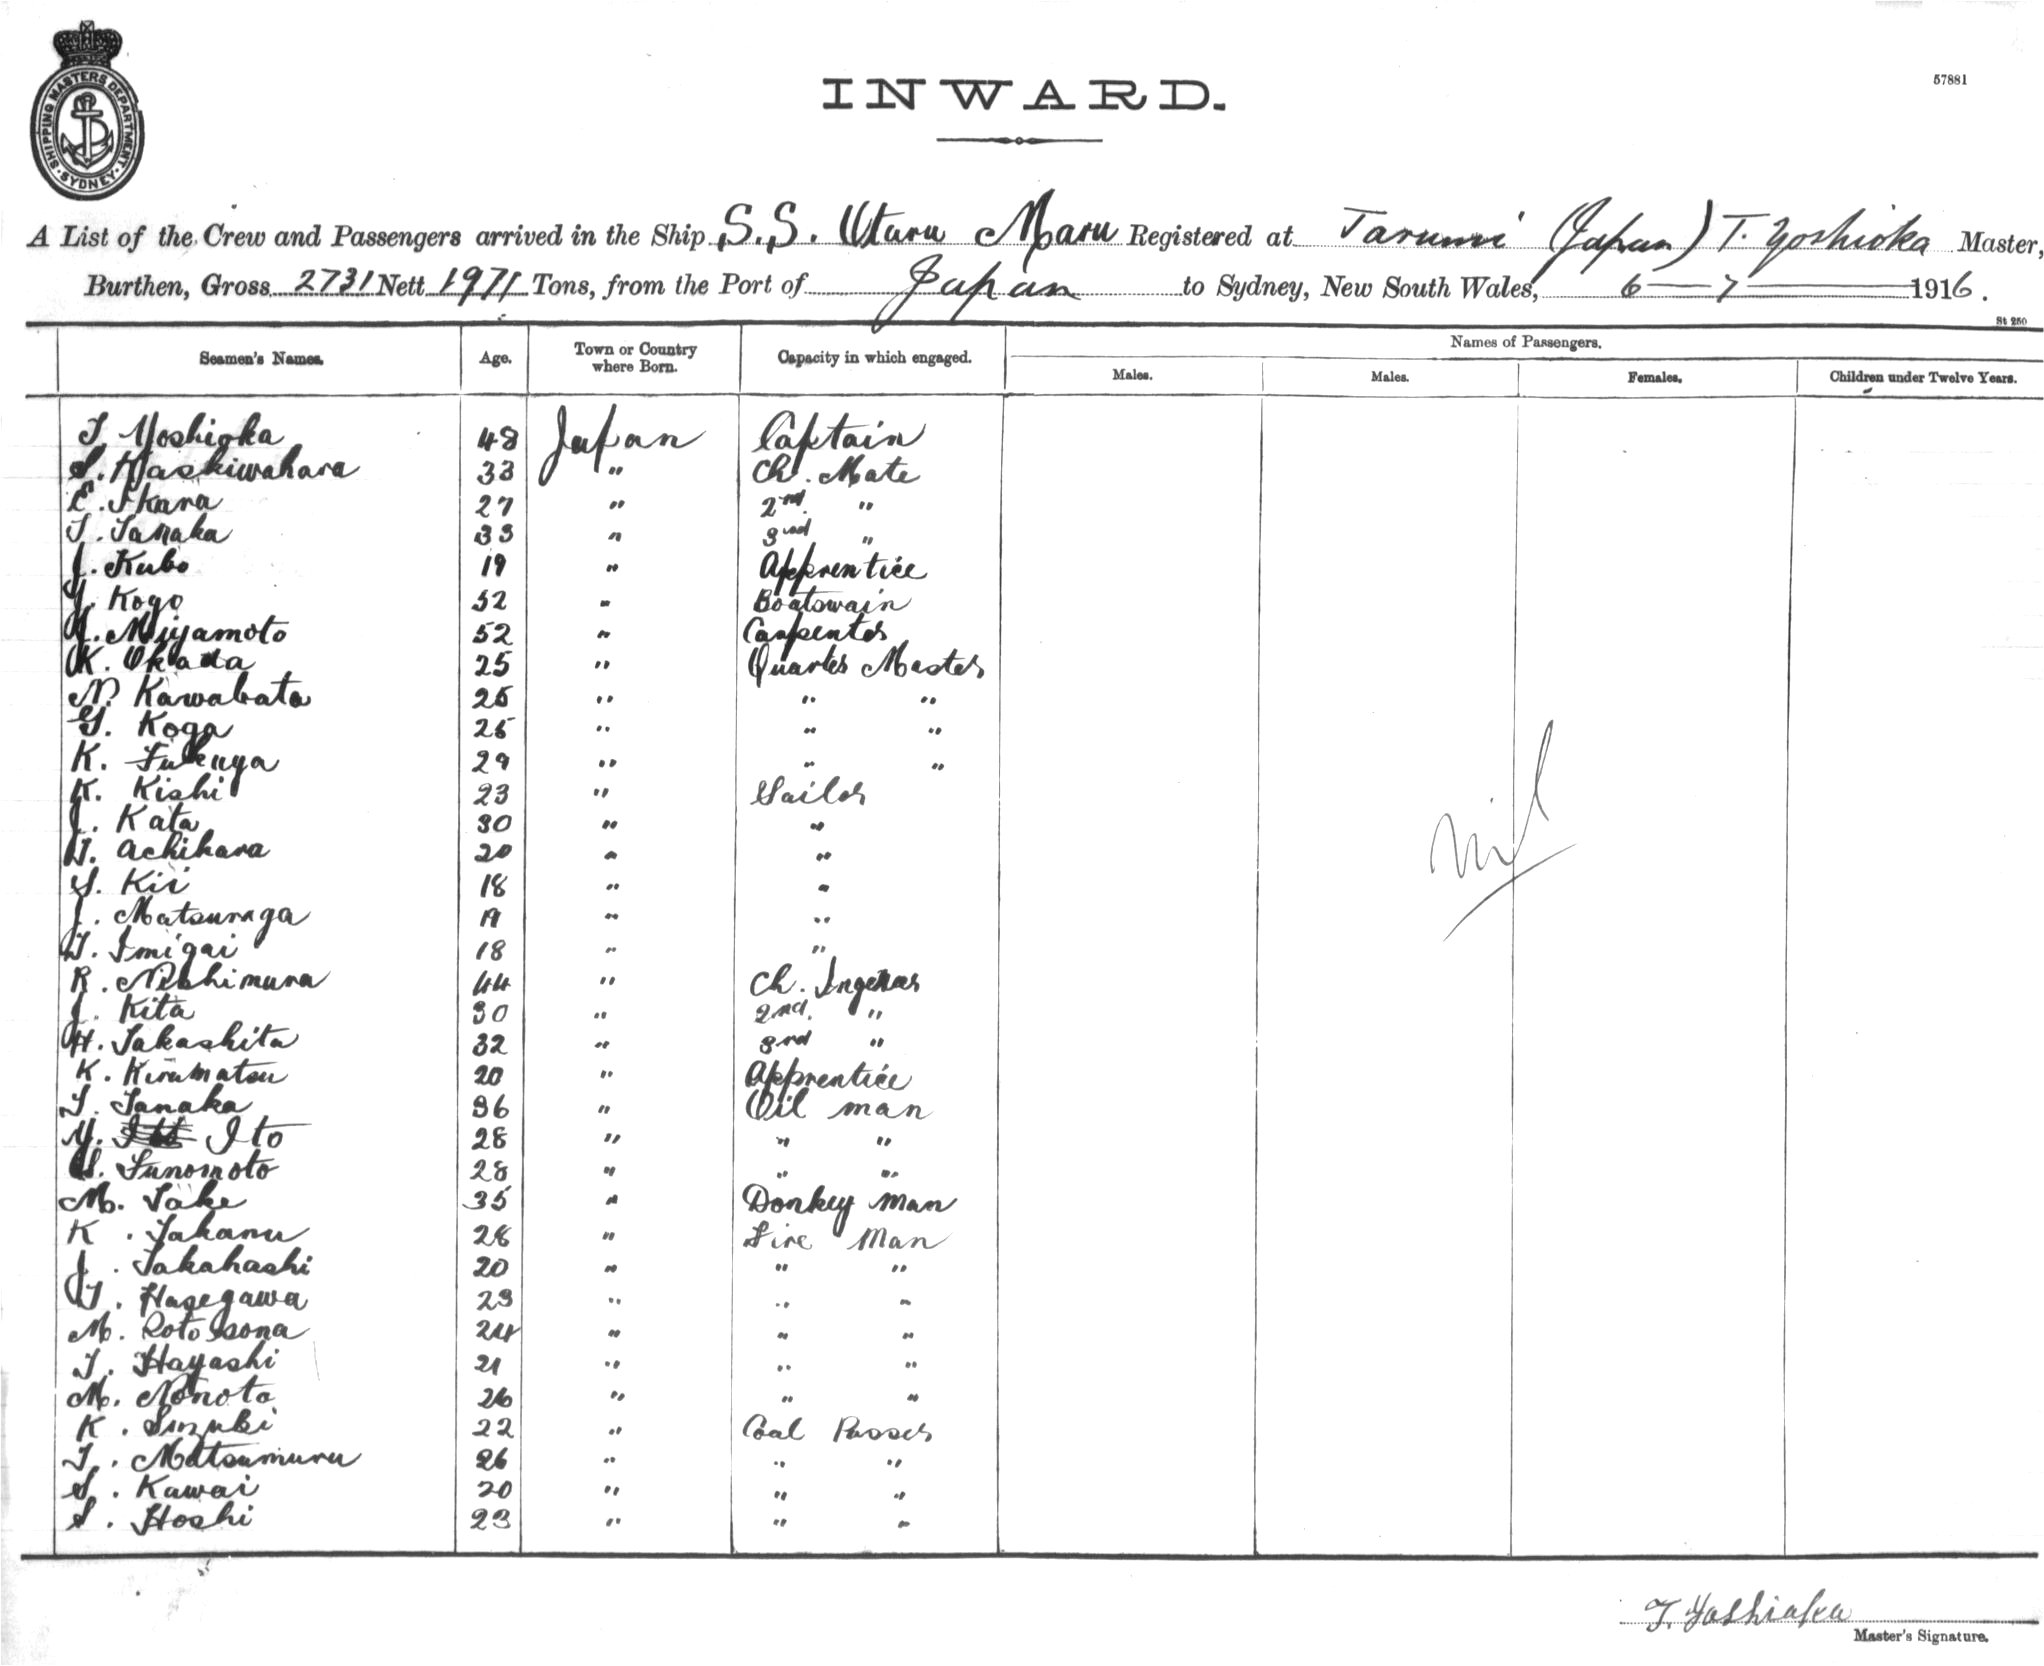 SHIPPING MASTERS DEPARTMENT. SYDNEY
INWARD.
57881
A List of the Crew and Passengers arrived in the Ship S.S. Otaru Maru Registered at Tarumi (Japan) T. Yoshioka Master,
Burthen, Gross 2731 Nett 1971 Tons, from the Port of Japan to Sydney, New South Wales, 6 — 7 — 1916.
St 250
Seamen's Names. Age. Town or Country where Born. Capacity in which engaged. Names of Passengers.
Males. Males. Females. Children under Twelve Years.
T. Yoshioka 48 Japan Captain
S. Hashiwahara 33 " Ch. Mate
E. Ikara 27 " 2nd. "
T. Tanaka 33 " 3rd "
J. Kubo 19 " Apprentice
Y. Kogo 52 " Boatswain
Miyamoto 52 " Carpenter
K. Okada 25 " Quarter Master
N. Kawabata 25 " " "
G. Koga 25 " " "
K. Fukuya 29 " " "
K. Kishi 23 " Sailor
J. Kata 30 " "
Achihara 20 " "
S. Kii 18 " "
J. Matsunaga 19 " "
T. Imigai 18 " "
R. Nishimura 44 " Ch. Ingeneer
J. Kita 30 " 2nd. "
H. Takashita 32 " 3rd "
K. Kiramatsu 20 " Apprentice
T. Tanaka 36 " Oil man
Y. Ito 28 " " "
S. Funomoto 28 " " "
M. Take 35 " Donkey man
K. Takanu 28 " Fire Man
J. Takahashi 20 " " "
T. Hasegawa 23 " " "
M. 24 " " "
T. Hayashi 21 " " "
M. Nonoto 26 " " "
K. Suzuki 22 " Coal Passer
T. Matsumuru 26 " " "
S. Kawai 20 " " "
S. Hoshi 23 " " "
Nil
T. Yoshioka
Master's Signature.